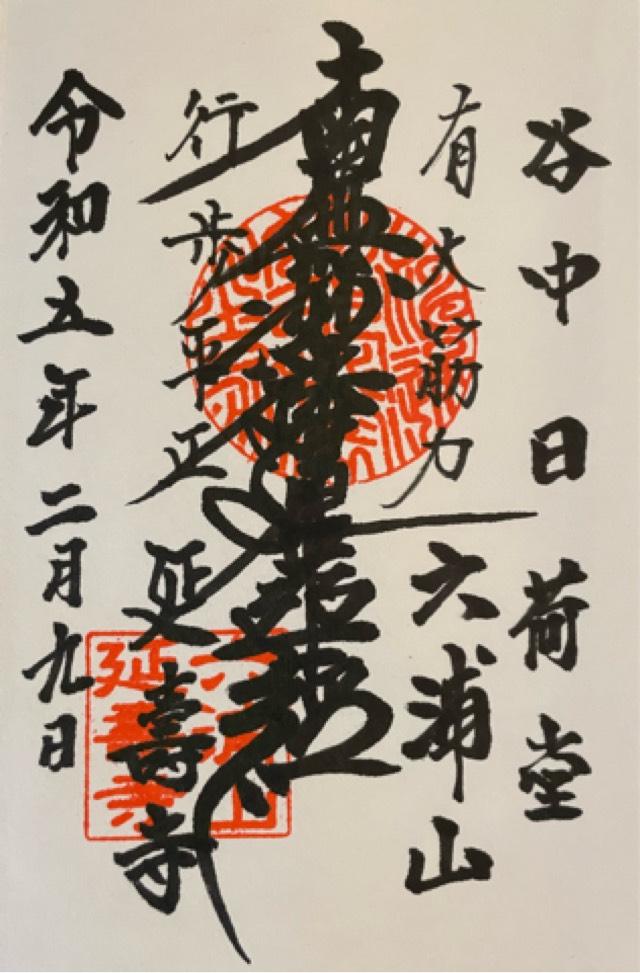 谷中日荷堂
有大筋力
六浦山
南無妙法蓮華経
行歩平正
延壽寺
令和五年二月九日